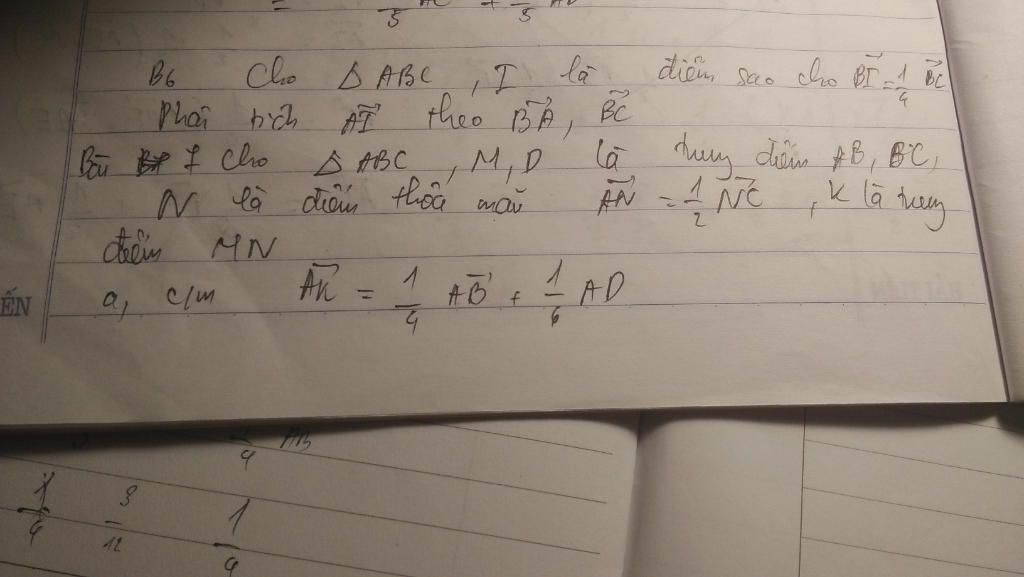 = 5 AC + 5 AD
B6 Cho Δ ABC, I là điểm sao cho BI = 1/4 BC
Phân tích AI theo BA, BC
Bài 7 Cho Δ ABC, M, D là trung điểm AB, BC,
N là điểm thỏa mãn AN = 1/2 NC, K là trung
điểm MN
ẾN
a, c/m AK = 1/4 AB + 1/6 AD
1/4 AB
1/4 3/12 1/4